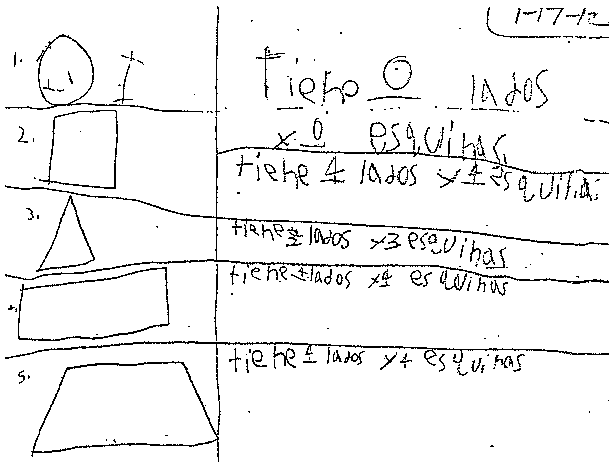 1-17-12
1.
tiene 0 lados
y 0 esquinas
2.
tiene 4 lados y 4 esquinas
3.
tiene lados y 3 esquinas
tiene 4 lados y 4 esquinas
5.
tiene 4 lados y 4 esquinas